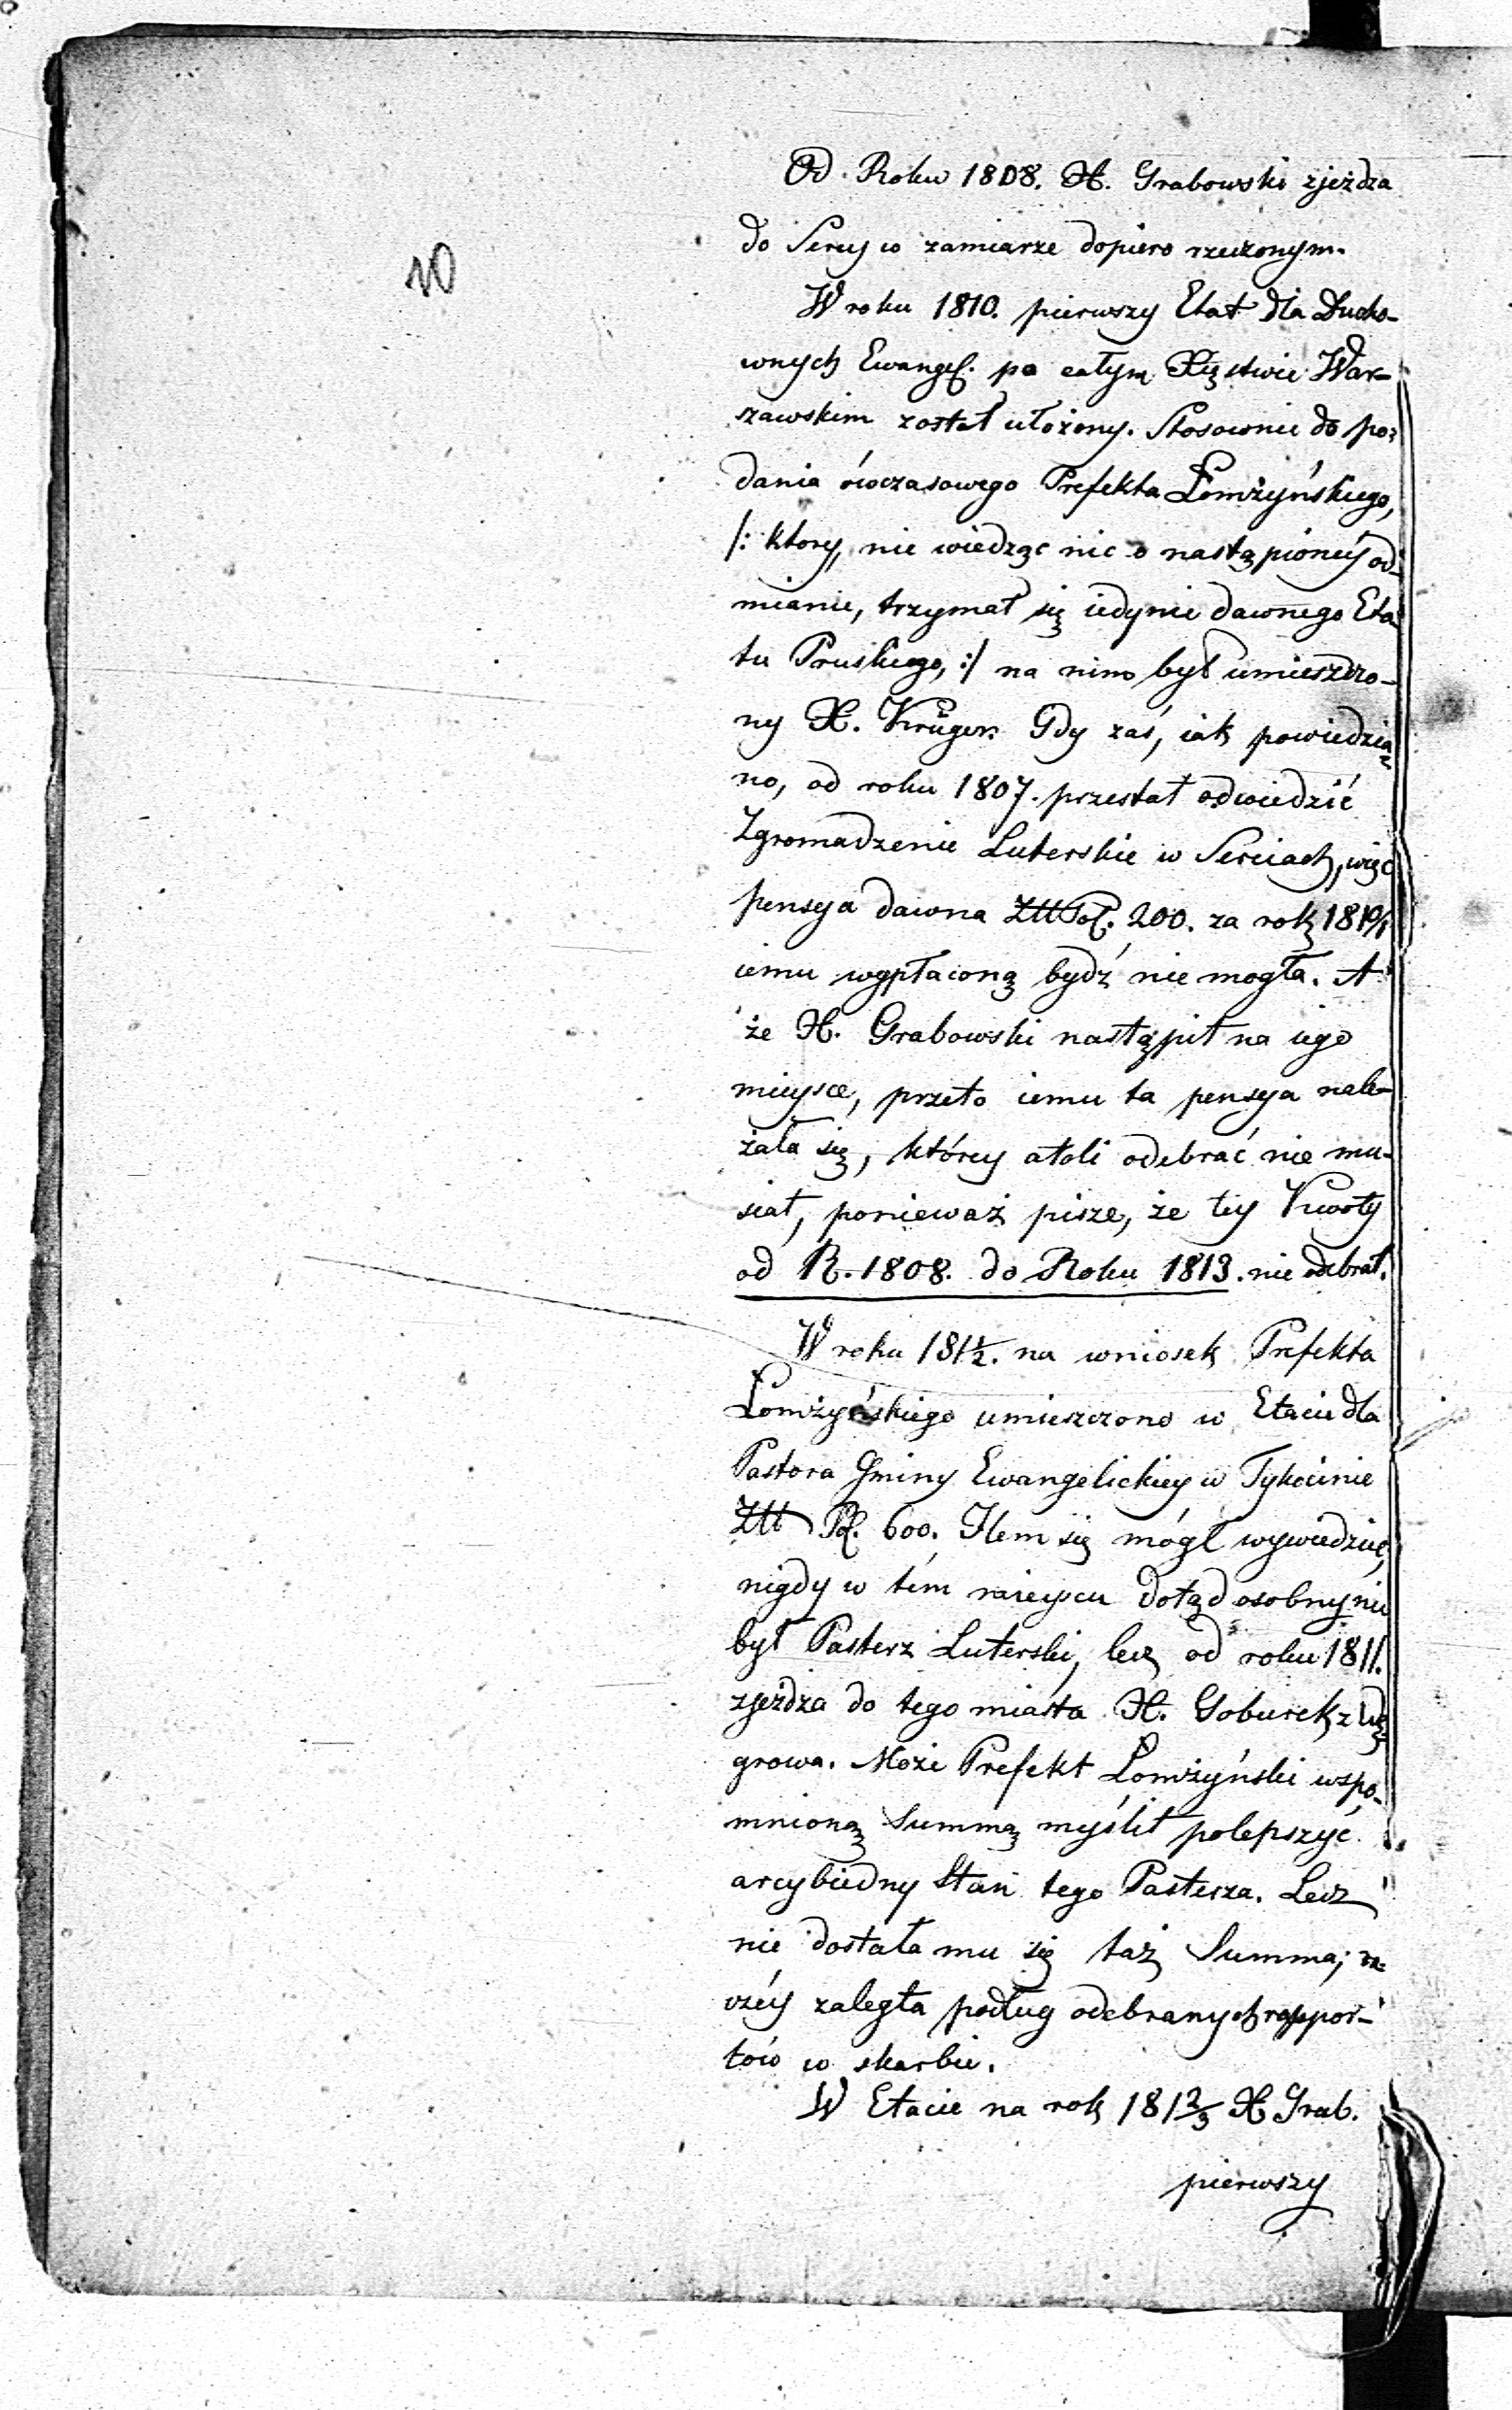 10
Od Roku 1808. X. Grabowski zjeżdza
do Serey w zamiarze dopiero rzeczonym.
W roku 1810. pierwszy Etat dla Ducho-
wnych Ewangel. po całym Xięstwie War-
szawskim został ułożony. Stosownie do po-
dania ówczasowego Prefekta Łomżyńskiego,
/: ktory, nie wiedząc nic o nastąpioney od-
mianie, trzymał się iedynie dawnego Eta-
tu Pruskiego, :/ na nim był umieszczo-
ny X. Krüger. Gdy zaś, iak powiedzia-
no, od roku 1807. przestał odwiedzić
Zgromadzenie Luterskie w Sereiach, więc
pensya dawna Ztt Pol. 200. za rok 1810/1
iemu wypłaconą bydź nie mogła. A
że X. Grabowski nastąpił na iego
mieysce, przeto iemu ta pensya nale-
żała się, którey atoli odebrać nie mu-
siał, ponieważ pisze, że tey Kwoty
od R. 1808. do Roku 1813. nie odebrał.
W roku 181½. na wniosek Prefekta
Łomżyńskiego umieszczono w Etacie dla
Pastora Gminy Ewangelickiey w Tykocinie
Ztt Pol. 600. Ilem się mógł wywiedzieć,
nigdy w tém mieyscu dotąd osobny nie
był Pasterz Luterski, lecz od roku 1811.
zjeżdza do tego miasta X. Goburek z Wę-
growa. Może Prefekt Łomżyński wspo-
mnioną Summą myślił polepszyć
arcybiedny Stan tego Pasterza. Lecz
nie dostała mu się taż Summa; ra-
czéy zaległa podług odebranych rappor-
tów w skarbie.
W Etacie na rok 181⅔ X Grab.
pierwszy